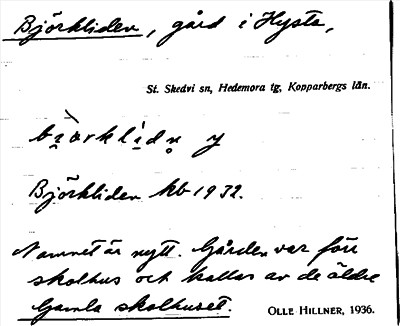 Björkliden, gård i Hysta,
St. Skedvi sn, Hedemora tg, Kopparbergs län.
Björkliden kb 1932.
Namnet är nytt. Gården var förr
skolhus och kallas av de äldre
Gamla skolhuset.
OLLE HILLNER, 1936.